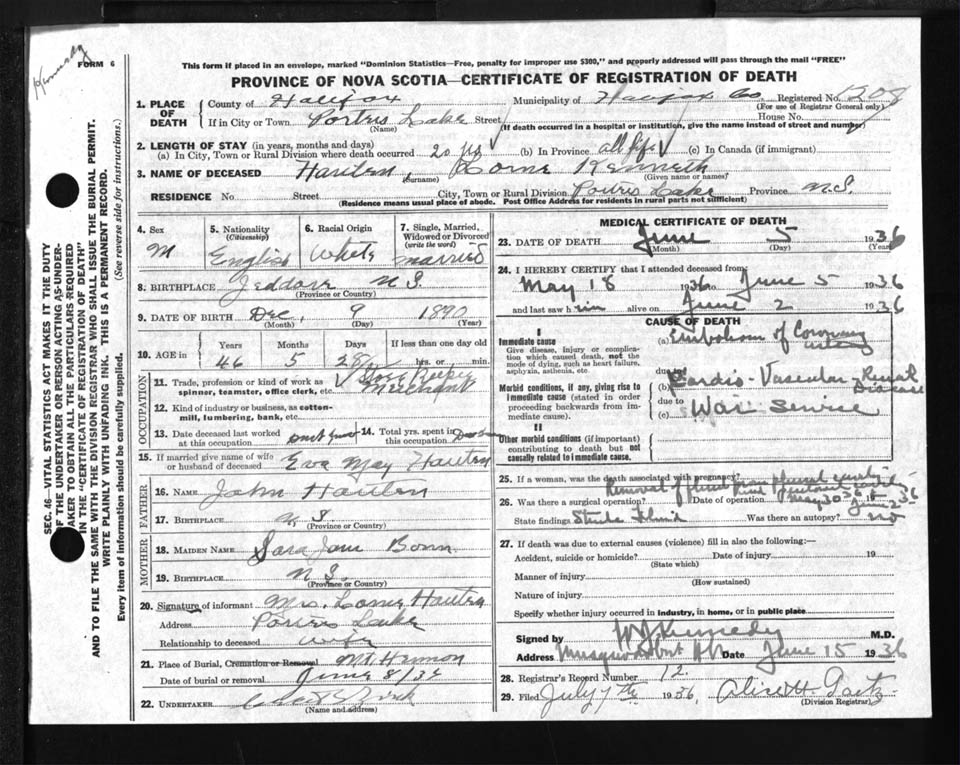 Kennedy
FORM 6
This form if placed in an envelope, marked "Dominion Statistics—Free, penalty for improper use $300," and properly addressed will pass through the mail "FREE"
PROVINCE OF NOVA SCOTIA—CERTIFICATE OF REGISTRATION OF DEATH
SEC. 46—VITAL STATISTICS ACT MAKES IT THE DUTY
OF THE UNDERTAKER OR PERSON ACTING AS UNDER-
TAKER TO OBTAIN ALL THE PARTICULARS REQUIRED
IN THE "CERTIFICATE OF REGISTRATION OF DEATH"
AND TO FILE THE SAME WITH THE DIVISION REGISTRAR WHO SHALL ISSUE THE BURIAL PERMIT.
WRITE PLAINLY WITH UNFADING INK. THIS IS A PERMANENT RECORD.
Every item of information should be carefully supplied. (See reverse side for instructions.)
1. PLACE OF DEATH County of Halifax Municipality of Halifax Co. Registered No. 1208
(For use of Registrar General only)
If in City or Town Porters Lake Street House No.
(Name) (If death occurred in a hospital or institution, give the name instead of street and number)
2. LENGTH OF STAY (in years, months and days)
(a) In City, Town or Rural Division where death occurred 20 yrs (b) In Province all life (c) In Canada (if immigrant)
3. NAME OF DECEASED , Lorne Kenneth
(Surname) (Given name or names)
RESIDENCE No. Street City, Town or Rural Division Porters Lake Province N.S.
(Residence means usual place of abode. Post Office Address for residents in rural parts not sufficient)
4. Sex M
5. Nationality (Citizenship) English
6. Racial Origin White
7. Single, Married, Widowed or Divorced (write the word) married
8. BIRTHPLACE Jeddore N S.
(Province or Country)
9. DATE OF BIRTH Dec, 9 1890
(Month) (Day) (Year)
10. AGE in Years Months Days If less than one day old
46 5 28 hrs. or min.
OCCUPATION
11. Trade, profession or kind of work as spinner, teamster, office clerk, etc. Store Keeper Merchant
12. Kind of industry or business, as cotton-mill, lumbering, bank, etc.
13. Date deceased last worked at this occupation
14. Total yrs. spent in this occupation
15. If married give name of wife or husband of deceased Eva May
FATHER
16. NAME John
17. BIRTHPLACE N. S.
(Province or Country)
MOTHER
18. MAIDEN NAME Sara Jane
19. BIRTHPLACE N S.
(Province or Country)
20. Signature of informant Mrs. Lorne
Address Porters Lake
Relationship to deceased wife
21. Place of Burial, Cremation or Removal Mt. Hermon
Date of burial or removal June 8/36
22. UNDERTAKER
(Name and address)
MEDICAL CERTIFICATE OF DEATH
23. DATE OF DEATH June 5 1936
(Month) (Day) (Year)
24. I HEREBY CERTIFY that I attended deceased from
May 18 1936 to June 5 1936
and last saw him alive on June 2 1936
CAUSE OF DEATH
I
Immediate cause
Give disease, injury or complication which caused death, not the mode of dying, such as heart failure, asphyxia, asthenia, etc.
(a) Embolism of Coronary artery
due to
Morbid conditions, if any, giving rise to immediate cause (stated in order proceeding backwards from immediate cause).
Cardio-Vascular-Renal Disease
due to
(c) War Service
II
Other morbid conditions (if important) contributing to death but not causally related to immediate cause.
25. If a woman, was the death associated with pregnancy?
Removal of fluid from pleural cavity
26. Was there a surgical operation? Date of operation May 30 36 June 2 36
State findings Sterile Fluid Was there an autopsy? no
27. If death was due to external causes (violence) fill in also the following:—
Accident, suicide or homicide? Date of injury 19
(State which)
Manner of injury
(How sustained)
Nature of injury
Specify whether injury occurred in industry, in home, or in public place
Signed by WJKennedy M.D.
Address Musquodoboit Hr Date June 15 1936
28. Registrar's Record Number 12.
29. Filed July 7th 1936
(Division Registrar)